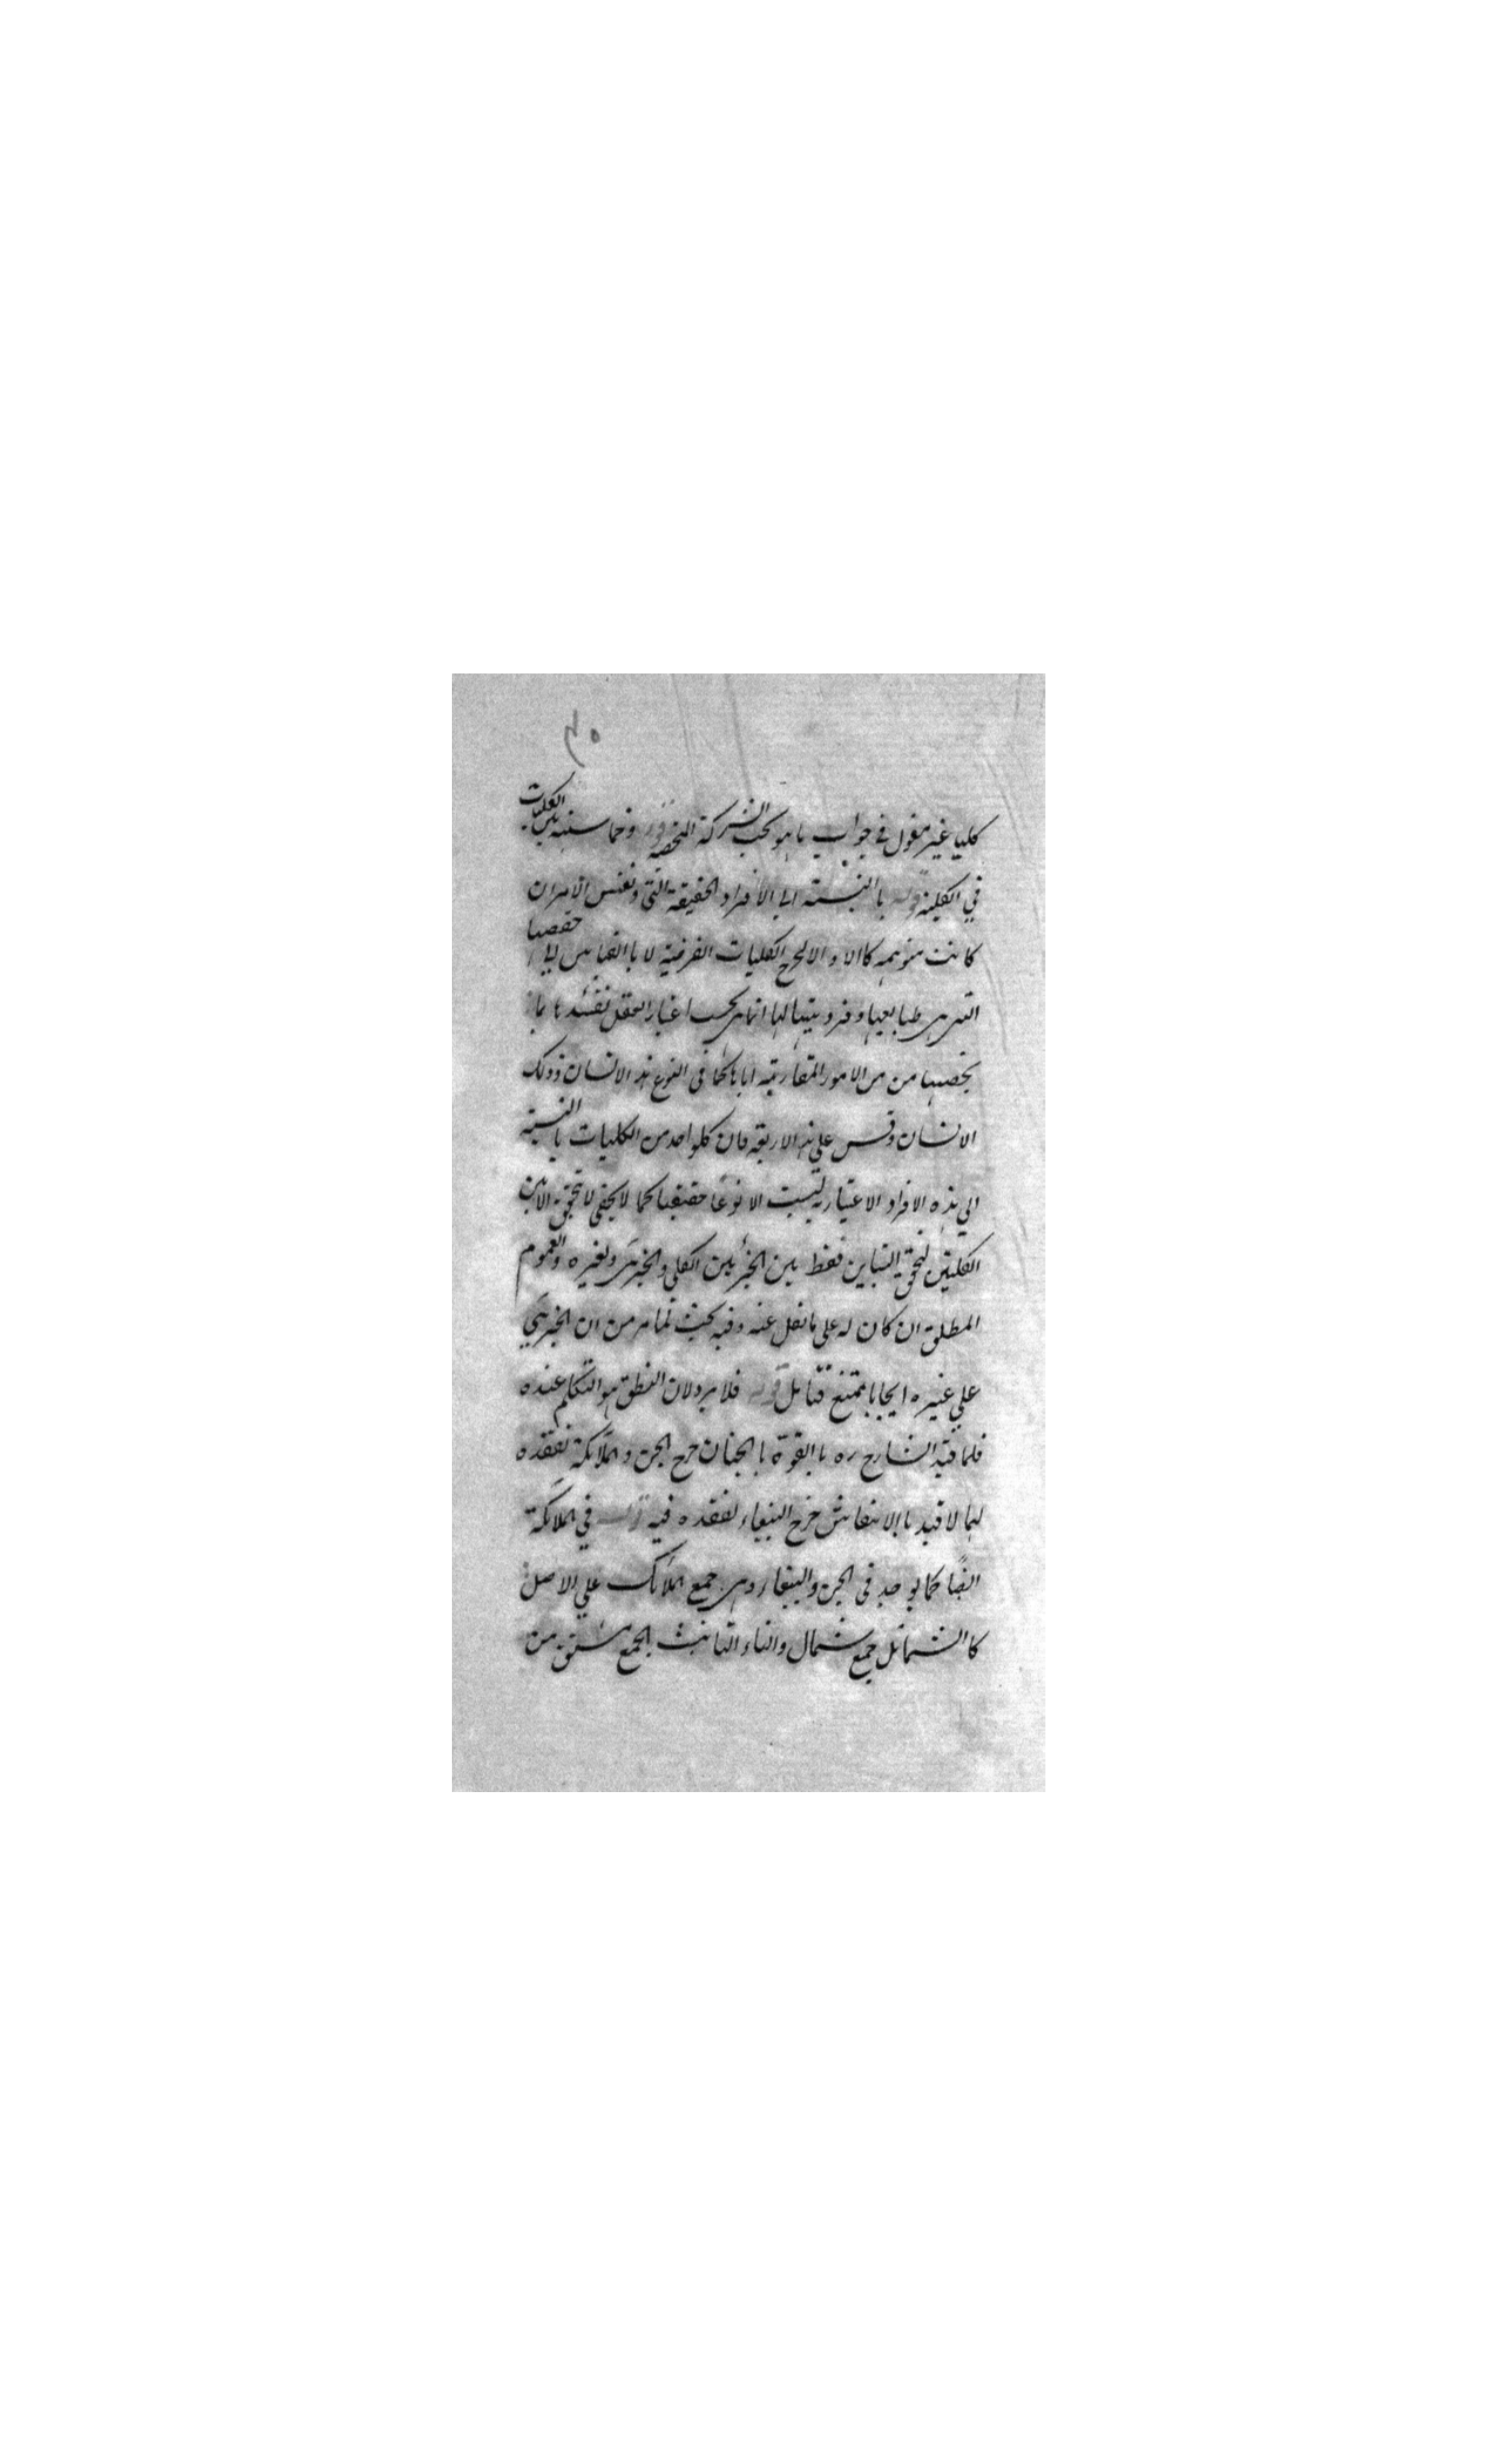 ٣٥
كليا غير مقول في جواب ما هو بحسب الشركة المختصة قوله وخماسية بين الكليات
في الكلية قوله بالنسبة الى الافراد الحقيقة التي ونفس الامر ان
كانت متوهمة كالا والا لخرج الكليات الفرضية لا بالقياس الى حصصها
التي هي طبايعها وفرديتها لها انما هي بحسب اعتبار العقل تقيدها بما
يخصصها من الامور المقارنة اياها كما في النوع هذا الانسان وذلك
الانسان وقس على هذا الاربعة فان كل واحد من الكليات بالنسبة
الى هذه الافراد الاعتبارية ليست الا نوعا حقيقيا كما لا يخفى لا يتحقق الا بين
الكليتين لتحقق التباين فقط بين الجزئيين الكلي والجزئي ولغيره والعموم
المطلق ان كان له على ما نقل عنه وفيه بحث لما مر من ان الجزئي
على غيره ايجابا ممتنع فتامل قوله فلا يرد لان النطق هو التكلم عنده
فلما قيد الشارح ره بالقوة بالجنان خرج الجن والملائكة لفقده
لهما لا قيد بالانتقاش خرج الببغاء لفقده فيه قوله في الملائكة
ايضا كما يوجد في الجن والببغاء وهي جمع ملائك على الاصل
كالشمائل جمع شمال والتاء التانيث الجمع مشتق من